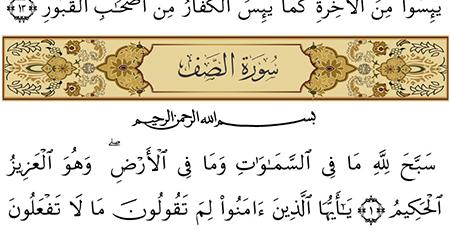 يَئِسُوا۟ مِنَ ٱلْءَاخِرَةِ كَمَا يَئِسَ ٱلْكُفَّارُ مِنْ أَصْحَٰبِ ٱلْقُبُورِ ﴿١٣﴾
سُورَةُ الصَّفِّ
بسم الله الرحمن الرحيم
سَبَّحَ لِلَّهِ مَا فِى ٱلسَّمَٰوَٰتِ وَمَا فِى ٱلْأَرْضِ ۖ وَهُوَ ٱلْعَزِيزُ
ٱلْحَكِيمُ ﴿١﴾ يَٰٓأَيُّهَا ٱلَّذِينَ ءَامَنُوا۟ لِمَ تَقُولُونَ مَا لَا تَفْعَلُونَ